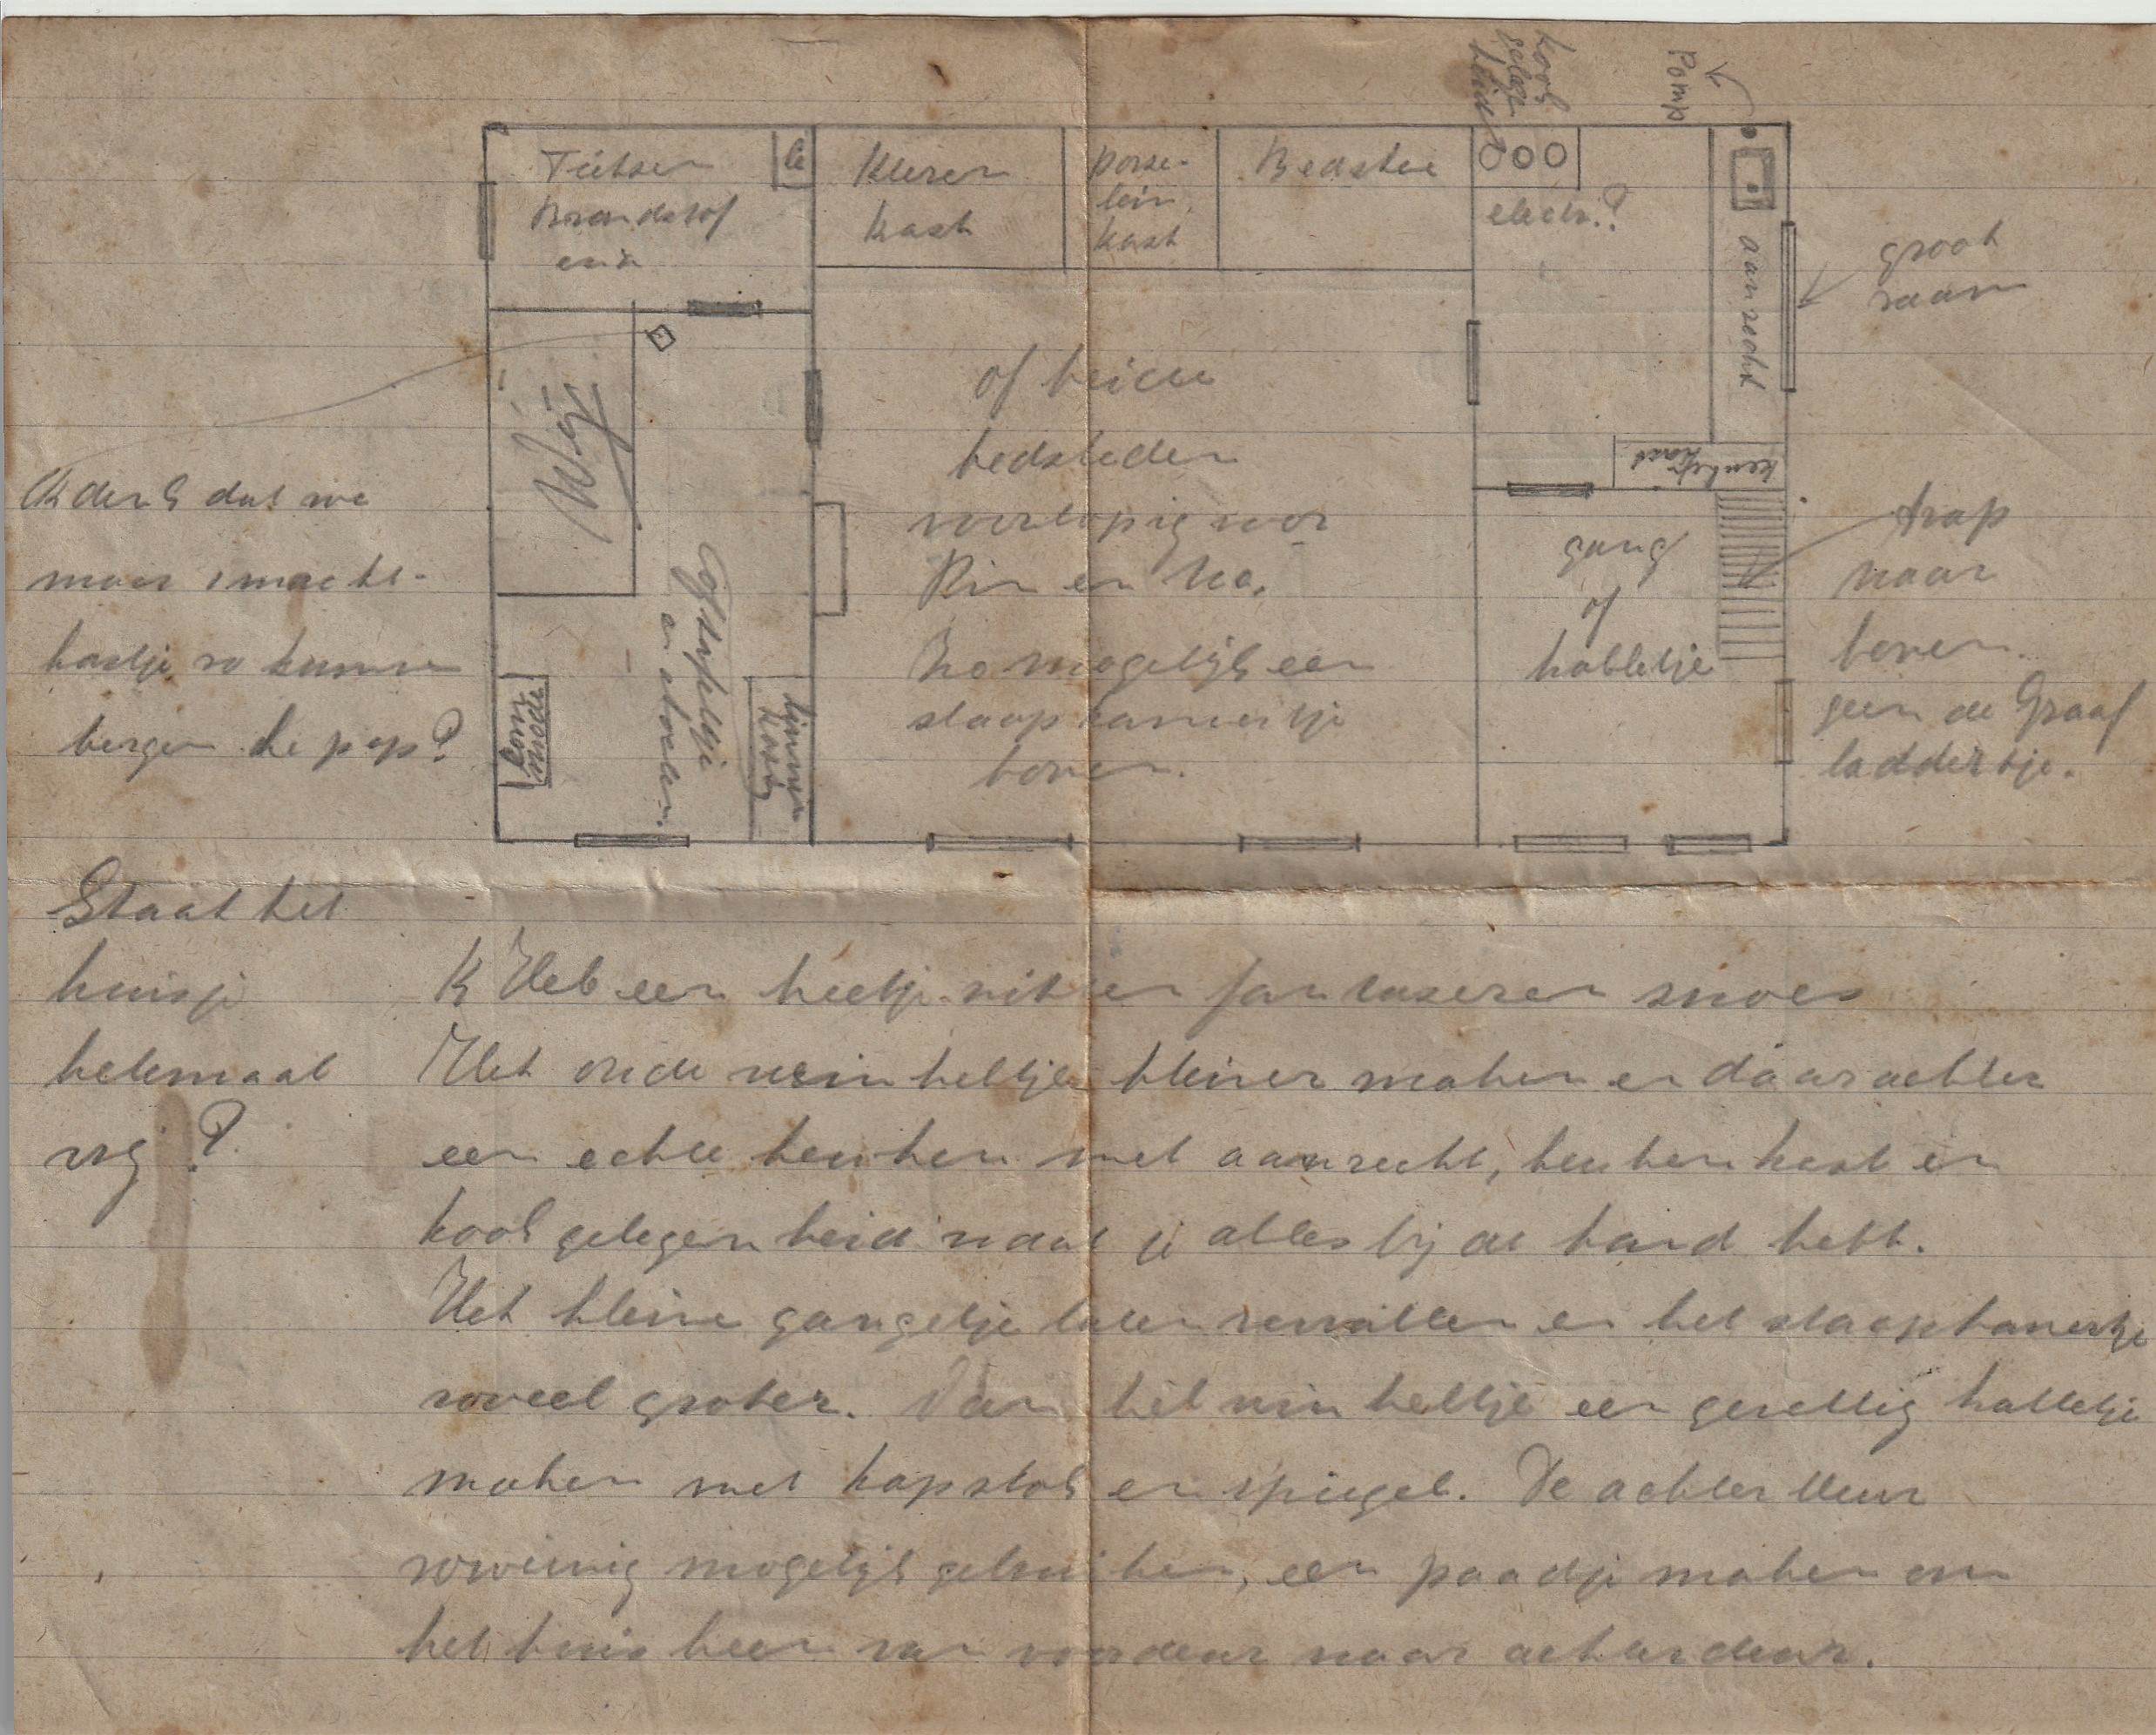 kook
gelege
heid
Pomp
Fietsen
brandstof
enz
Kleren
kast
porse-
lein
kast
Bedstee
electr.?
aanrecht
groot
raam
keuken
kast
Wij
of beide
bedsteden
voorlopig voor
Rin en Ko.
Zo mogelijk een
slaapkamertje
boven.
gang
of
halletje
trap
naar
boven.
geen de Graaf
laddertje.
Ik denk dat we
maar 1 nacht-
kastje zo kunnen
bergen he pop?
kom
mode
tafeltje
en stoelen.
linnen
kast
Staat het
huisje
helemaal
vrij?
K Heb een beetje zitten fantaseren snoes
Het oude winkeltje kleiner maken en daarachter
een echte keuken met aanrecht, keukenkast en
kookgelegenheid zodat je alles bij de hand hebt.
Het kleine gangetje laten vervallen en het slaapkamertje
zoveel groter. Van het winkeltje een gezellig halletje
maken met kapstok en spiegel. De achterdeur
zoweinig mogelijk gebruiken, een paadje maken om
het huis heen van voordeur naar achterdeur.